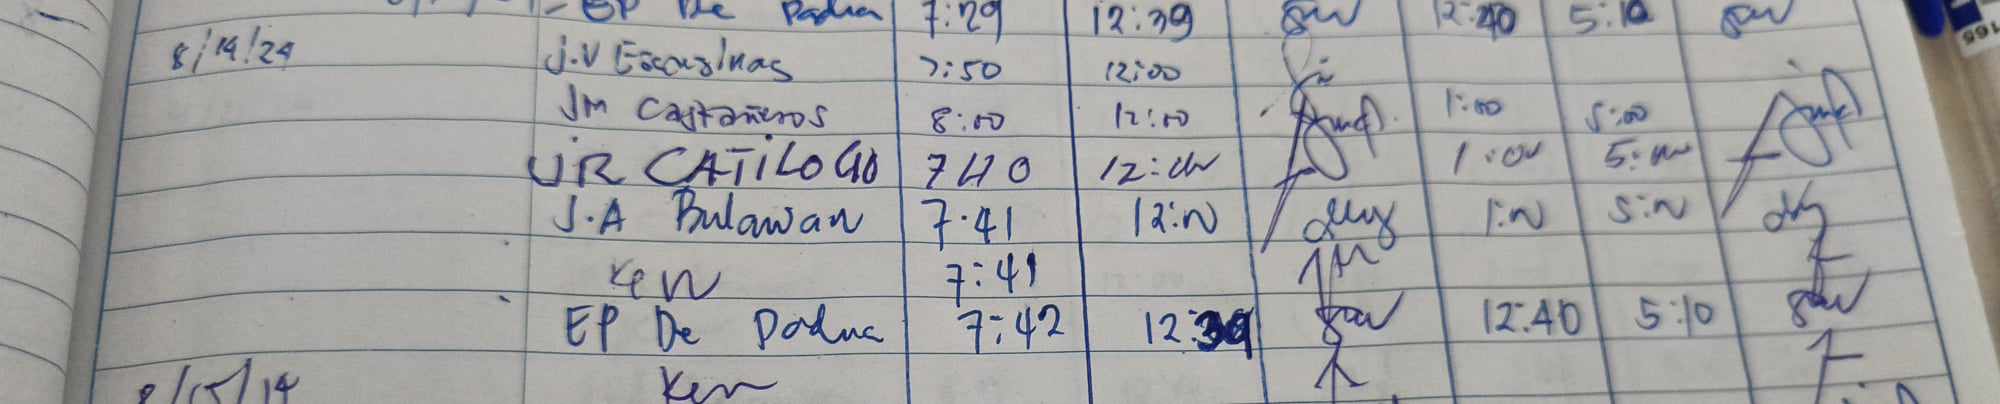 EP De Padua 7:29 12:39 12:40 5:10
8/14/24 J.V Escasinas 7:50 12:00
JM Castañeros 8:00 12:00 1:00 5:00
JR CATILOGO 740 12:00 1:00 5:00
J.A Bulawan 7.41 12:00 1:00 5:00
Ken 7:41
EP De Padua 7:42 12:39 12:40 5:10
8/15/14 Ken
165